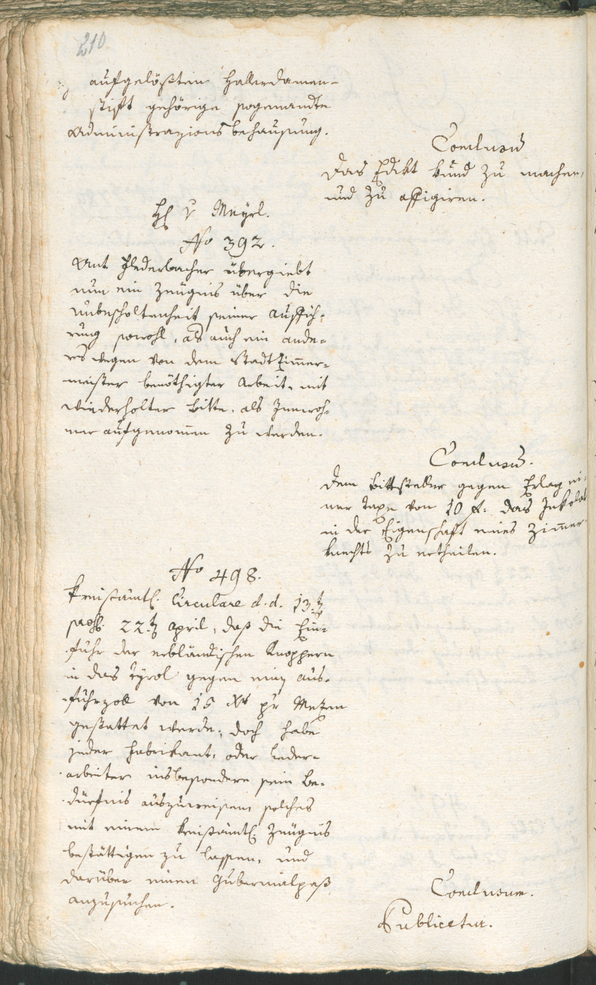 210.
aufgelößten Hallerdamen-
stift gehörige sogenannte
Administrazions behausung.
Conclusum
Das Edikt kund zu machen,
und zu affigiren.
H v Mayrl.
No 392.
Ant Federbacher übergiebt
nun ein Zeugnis über die
Unbescholtenheit seiner Auffüh-
rung sowohl, als auch ein ande-
res wegen von dem Stadtzimmer-
meister benöthigter Arbeit, mit
wiederholter Bitte, als Innwoh-
ner aufgenommen zu werden.
Conclusum.
Dem Bittsteller gegen Erlag ei-
ner Taxe von 10 f. das Inkolat
in der Eigenschaft eines Zimmer-
knechts zu ertheilen.
No 498.
Kreisämtl. Circulare d. d. 13t
praes. 22t April, daß die Ein-
fuhr der erbländischen Knoppern
in das Tyrol gegen einen Aus-
fuhrzoll von 15 Xr pr Metzen
gestattet werde; doch habe
jeder Fabrikant, oder Leder-
arbeiter insbesondere sein Be-
dürfnis auszuweisen, solches
mit einem Kreisämtl Zeugnis
bestättigen zu lassen, und
darüber einen Gubernialpaß
anzusuchen.
Conclusum.
Publicetur.